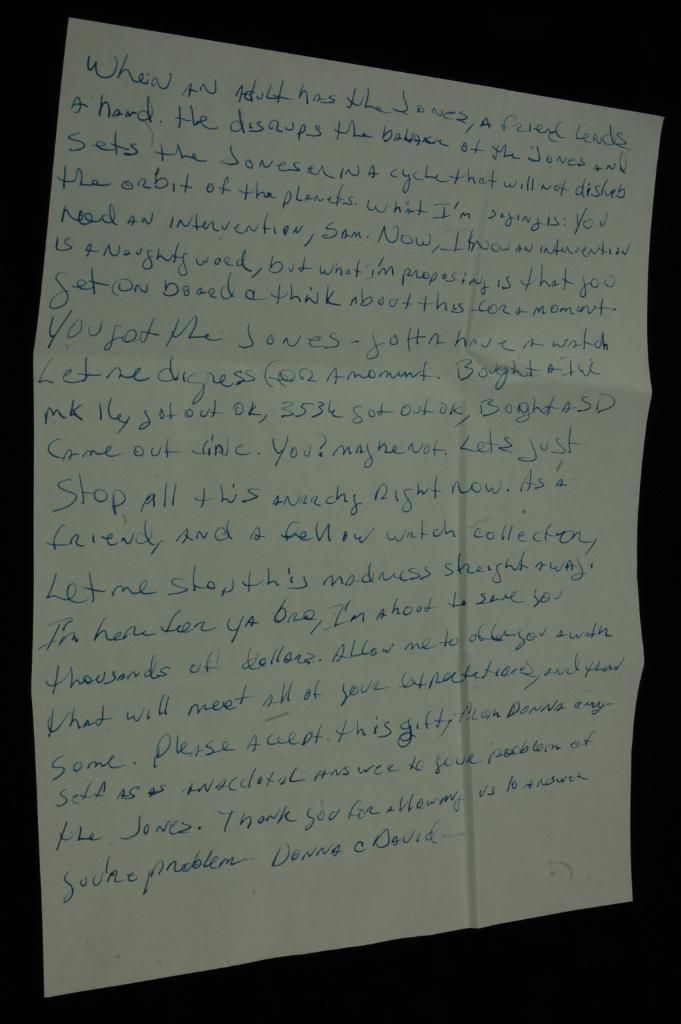 When an adult has the Jones, a friend lends
a hand. He disrups the balance of the Jones and
sets the Joneser in a cycle that will not disturb
the orbit of the planets. What I'm saying is: You
need an intervention, Sam. Now, I know an intervention
is a naughty word, but what i'm proposing is that you
get on board & think about this for a moment.
You got the Jones - gotta have a watch
Let me digress for a moment. Bought a IWC
MK 16, got out ok, 3536 got out ok, Bought a SD
came out sinc. You? maybe not. Lets just
stop all this anarchy right now. As a
friend, and a fellow watch collector,
Let me stop this madness straight away.
I'm here for ya bro, I'm about to save you
thousands of dollars. Allow me to you a watch
that will meet all of your expectations, and than
some. Please accept this gift, from Donna any-
self as as anacdotal answer to your problem of
the Jones. Thank you for allowing us to answer
you're problem - Donna & David